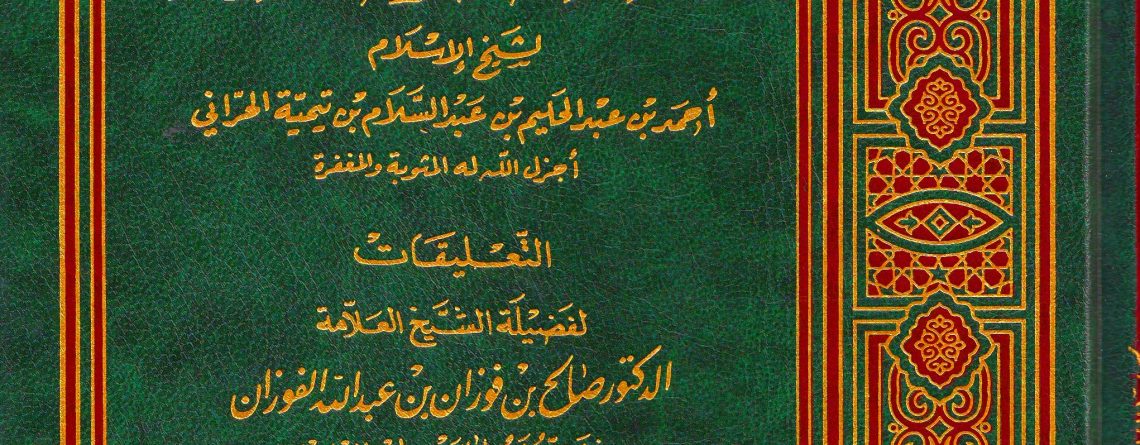 لشيخ الإسلام
أحمد بن عبد الحليم بن عبد السلام بن تيمية الحراني
أجزل الله له المثوبة والمغفرة
التعليقات
لفضيلة الشيخ العلامة
الدكتور صالح بن فوزان بن عبد الله الفوزان